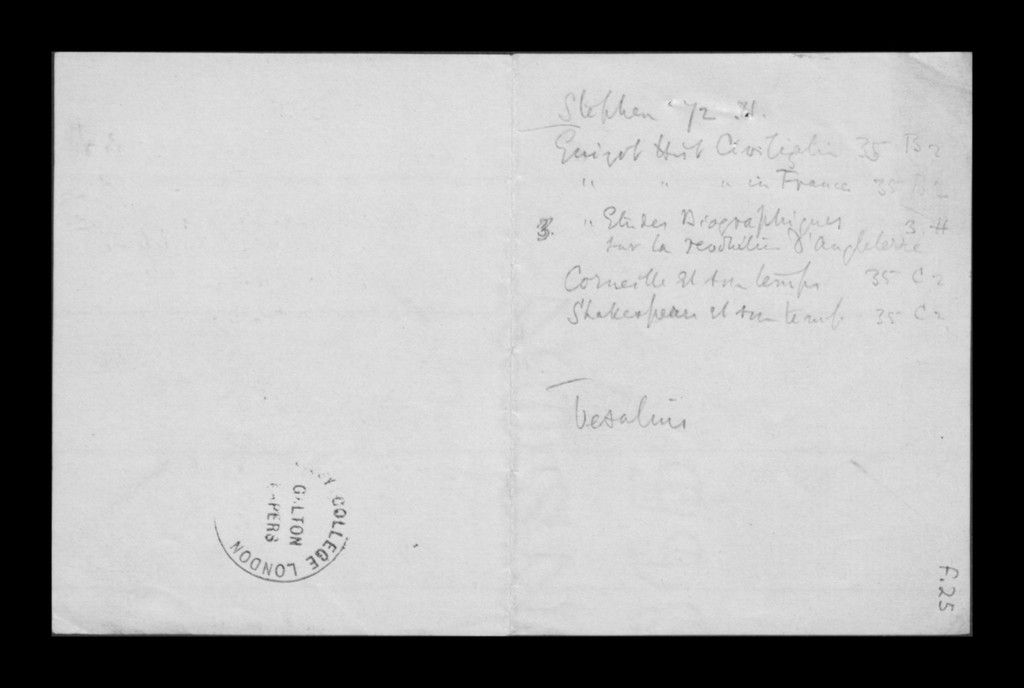 Stephen '72 H.
Guizot Hist Civilizatin 35 B2
" " " in France 35 B2
3. " Etudes Biographiques 3. H
sur la revolution d'Angleterre
Corneille et son temps 35 C2
Shakespeare et son temps 35 C2
Vesalius
COLLEGE LONDON
GALTON
PAPERS
F.25